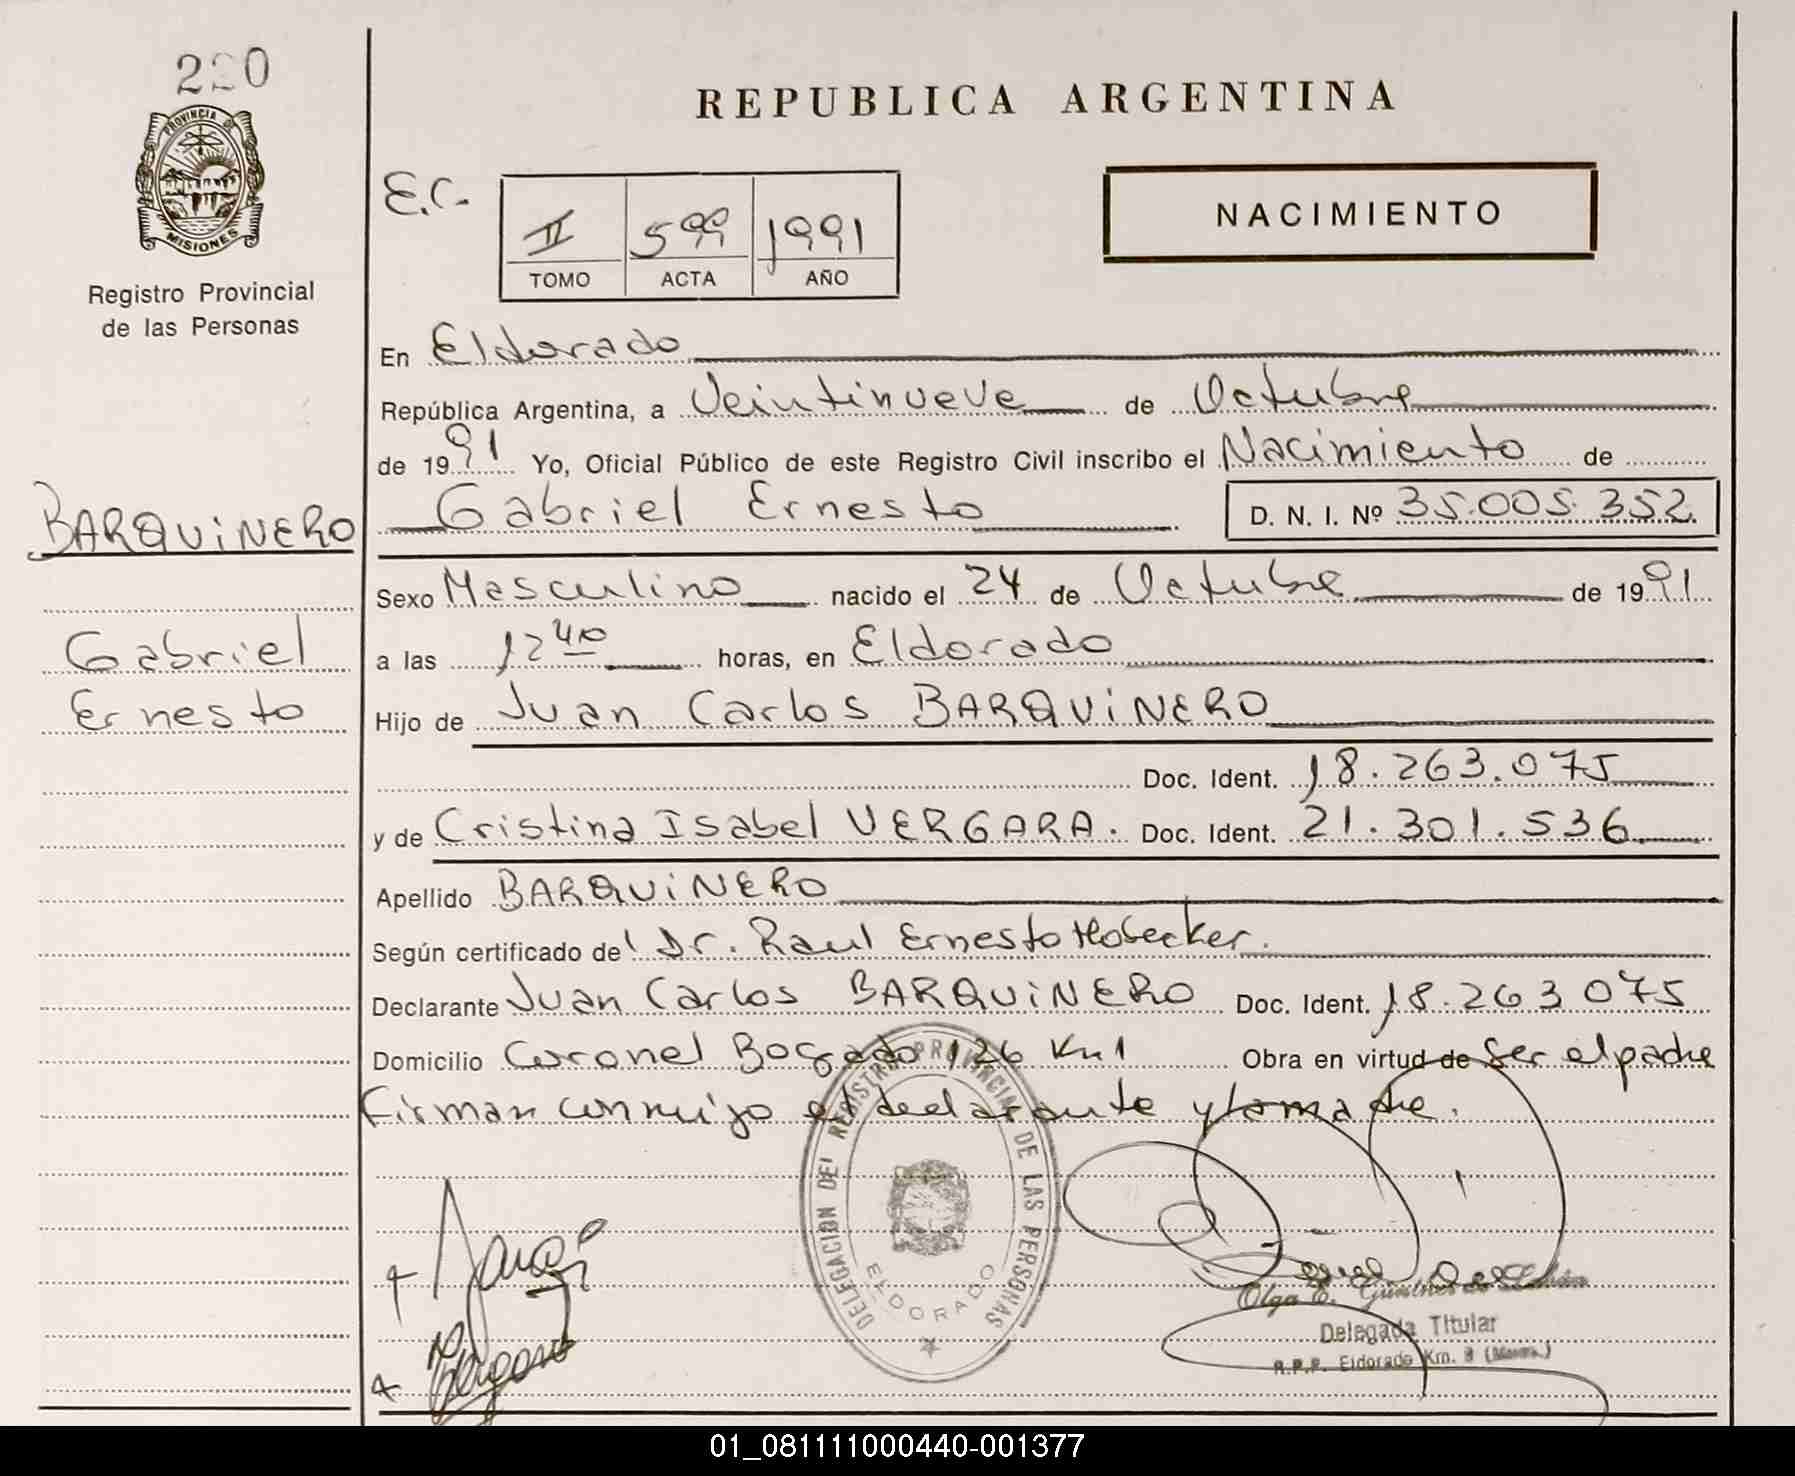 220
PROVINCIA DE
MISIONES
Registro Provincial
de las Personas
BARQUINERO
Gabriel
Ernesto
REPUBLICA ARGENTINA
E.C.
II 599 1991
TOMO ACTA AÑO
NACIMIENTO
En Eldorado
República Argentina, a Veintinueve de Octubre
de 1991 Yo, Oficial Público de este Registro Civil inscribo el Nacimiento de
Gabriel Ernesto D. N. I. Nº 35.005.352
Sexo Masculino nacido el 24 de Octubre de 1991
a las 12 40 horas, en Eldorado
Hijo de Juan Carlos BARQUINERO
Doc. Ident. 18.263.075
y de Cristina Isabel VERGARA. Doc. Ident. 21.301.536
Apellido BARQUINERO
Según certificado de Dr. Raul Ernesto Hobecker.
Declarante Juan Carlos BARQUINERO Doc. Ident. 18.263.075
Domicilio Coronel Bogado 126 Km 1 Obra en virtud de ser el padre
Firman conmigo el declarante y la madre.
DELEGACION DEL REGISTRO PROVINCIAL DE LAS PERSONAS
ELDORADO
Olga E.
Delegada Titular
R.P.P. Eldorado Km.
01_081111000440-001377